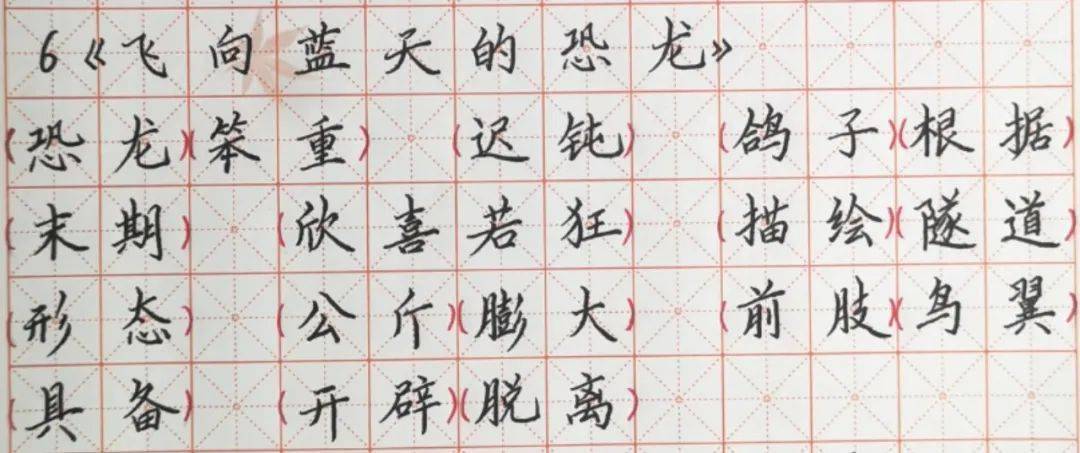 6《飞向蓝天的恐龙》
(恐龙)(笨重) (迟钝) (鸽子)(根据)
(末期) (欣喜若狂) (描绘)(隧道)
(形态) (公斤)(膨大) (前肢)(鸟翼)
(具备) (开辟)(脱离)